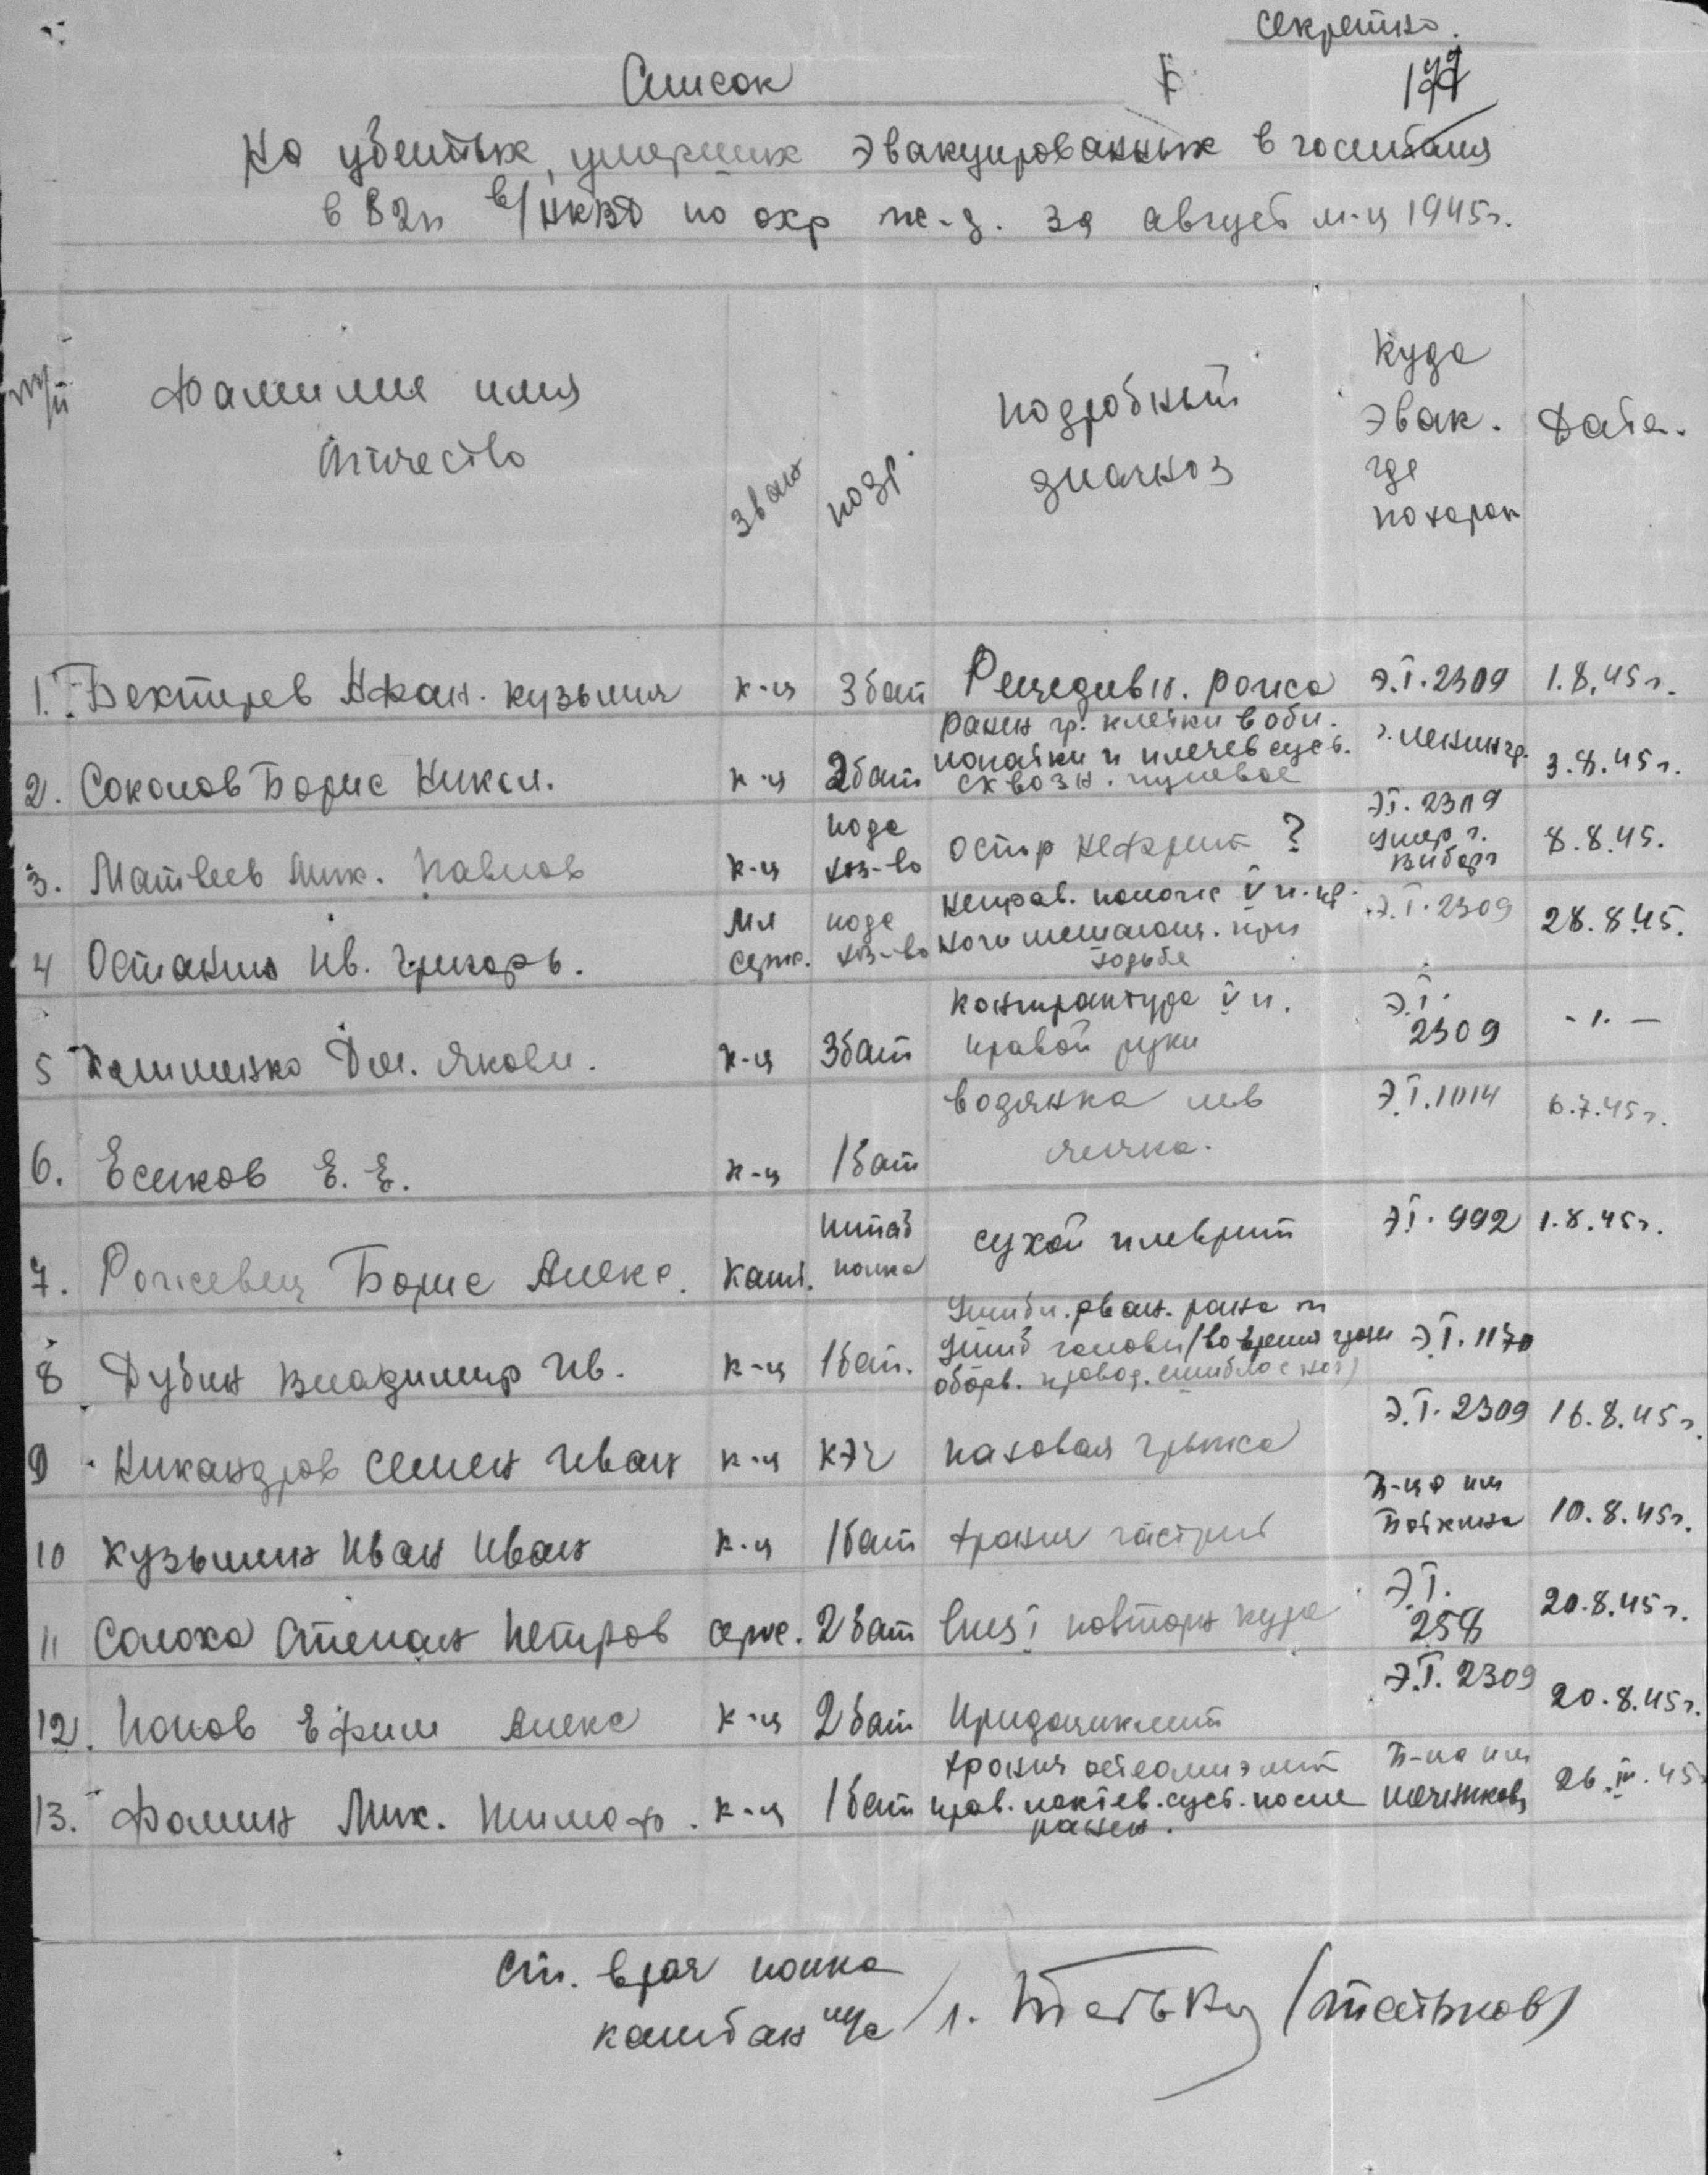 Секретно.
Список
177
на убитых, умерших эвакуированных в госпиталя
в 82п в/НКВД по охр ж-д. за август м-ц 1945г.
Фамилия имя
Отчество
зван
подр.
подробный
диагноз
Куда
эвак.
где
похорон
Дата.
1. Бектярев Афан. Кузьмич к-ц 3 бат Рецедивн. рожа Э.Г. 2309 1.8.45г.
2. Соколов Борис Никол. к-ц 2 бат ранен гр. клетки в обл.
лопатки и плечев суст.
сквозн. пулевое г. Ленингр. 3.8.45г.
3. Матвеев Мих. Павлов к-ц подс
хоз-во Остр нефрит ? ЭГ. 2309
умер г.
Выборг 8.8.45.
4 Остакин Ив. Григорь. Мл
серж. подс
хоз-во Неправ. полож V п. пр.
ноги мешающ. при
ходьбе Э.Г. 2309 28.8.45.
5 Дм. Яковл. к-ц 3 бат контрактура V п.
правой руки Э.Г.
2309 -"-
6. Есиков Е. Е. к-ц 1 бат водянка лев
яичка. Э.Г. 1014 6.7.45г.
7. Рожевец Борис Алекс. Капт. штаб
полка сухой плеврит ЭГ. 992 1.8.45г.
8 Дубин Владимир Ив. к-ц 1 бат. Ушибл. рван. рана и
ушиб головы (во время грозы
оборв. провод. сшибло с ног) ЭГ. 1170
9 Никандров Семен Иван к-ц КЭЧ паховая грыжа Э.Г. 2309 16.8.45г.
10 Кузьмин Иван Иван к-ц 1 бат хронич гастрит Б-ца им
Боткина 10.8.45г.
11 Солоха Степан Петров серж. 2 бат повторн курс Э.Г.
258 20.8.45г.
12. Попов Ефим Алекс к-ц 2 бат Иридоциклит Э.Г. 2309 20.8.45г.
13. Фомин Мих. Тимоф. к-ц 1 бат хронич остеомиэлит
прав. локтев. суст. после
ранен. Б-ца им
Мечникова
Ст. врач полка
капитан м/с (Татьков)